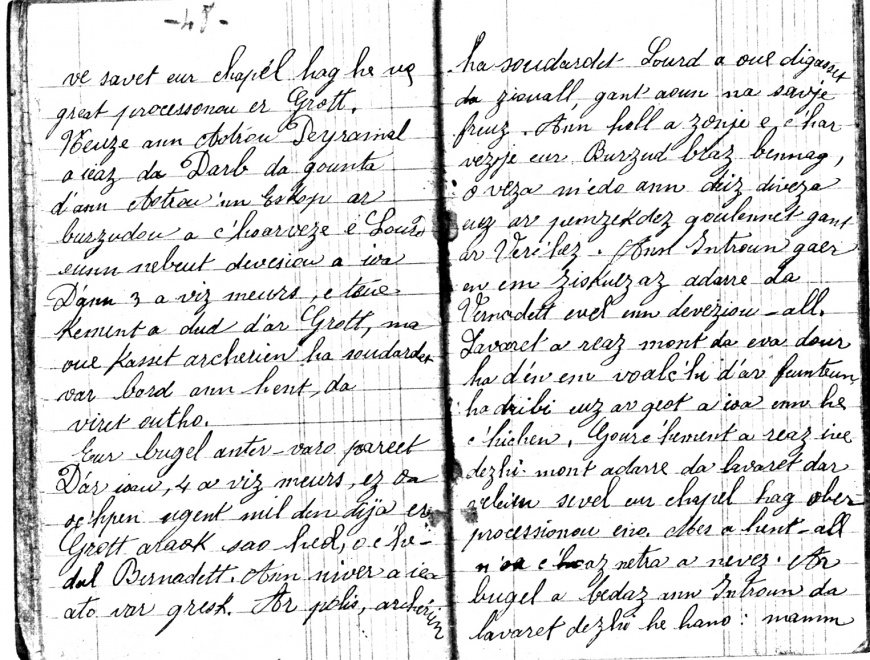 - 45 -
ve savet eur chapél hag he ve
great processonou er Grott.
Neuze ann Aotrou Peyramal
a ieaz da Darb da gounta
d'ann Aotrou 'nn Eskop ar
burzudou a c'hoarveze e Lourd
eunn nebeut devesiou a ioa
D'ann 3 a viz meurs, e teue
kement a dud d'ar Grott, ma
oue kasset archerien ha soudardet
var bord ann hent, da
viret outho.
Eur bugel anter-varo pareet
D'ar iaou, 4 a viz meurs, ez oa
oc'hpen ugent mil den dija er
Grott araok sao heol, o c'he-
dal Bernadett. Ann niver a iea
ato var gresk. Ar polis, archerien
ha soudardet Lourd a oue digasset
da ziouall, gant aoun na savje
freuz. Ann holl a zonje e c'har
vezje eur Burzud braz bennag,
o veza n'edo ann deiz diveza
euz ar pemzekdez goulennet gant
ar Verc'hez. Ann Introun gaer
en em ziskuezaz adarre da
Vernadett evel enn deveziou-all.
Lavaret a reaz mont da eva dour
ha d'en em voalc'hi d'ar feunteun
ha dribi euz ar geot a ioa enn he
c'hichen. Gourc'hement a reaz ive
dezhi mont adarre da lavaret d'ar
veleien sevel eur chapel hag ober
processionou eno. Mes a hent-all
n'oa c'hoaz netra a nevez. Ar
bugel a bedaz ann Introun da
lavaret dezhi he hano: mamm